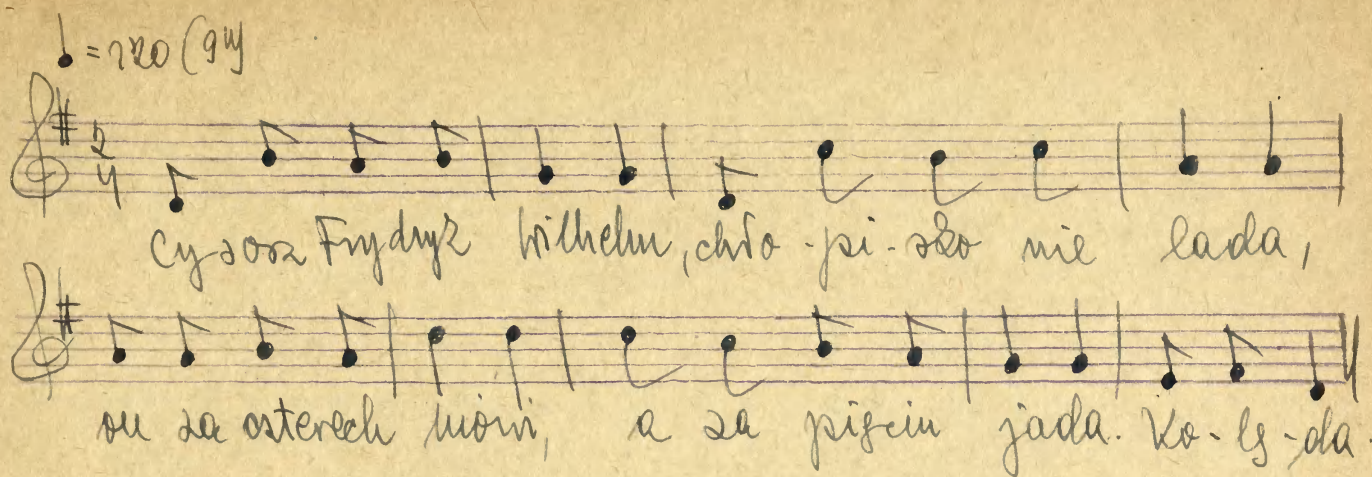 = 120 (9")
2
4
Cysorz Frydryk Wilhelm, chło-pi-sko nie lada,
on za czterech mówi, a za pięciu jada. Ko-lę-da.